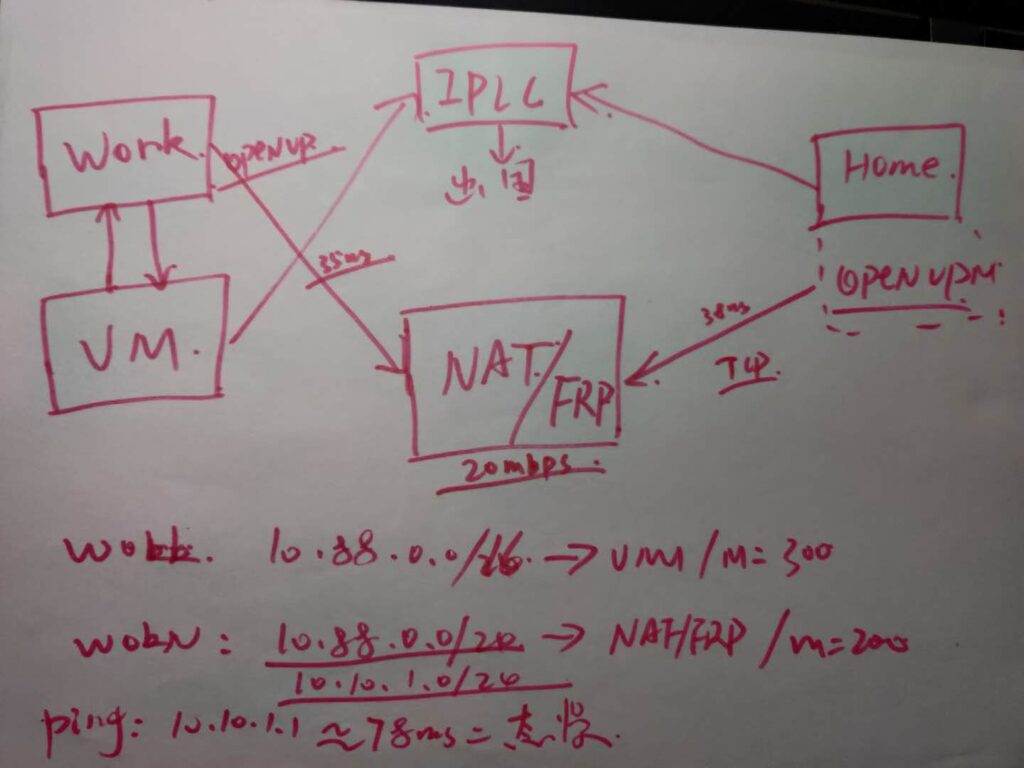 IPLC
出国
Work.
openvp.
Home.
35ms
openvpn
VM.
38ms
TCP.
NAT/FRP
20mbps.
10.88.0.0/16 → VM /M=300
10.88.0.0/24 → NAT/FRP /m=200
10.10.1.0/24
ping: 10.10.1.1 ≈78ms =太慢.